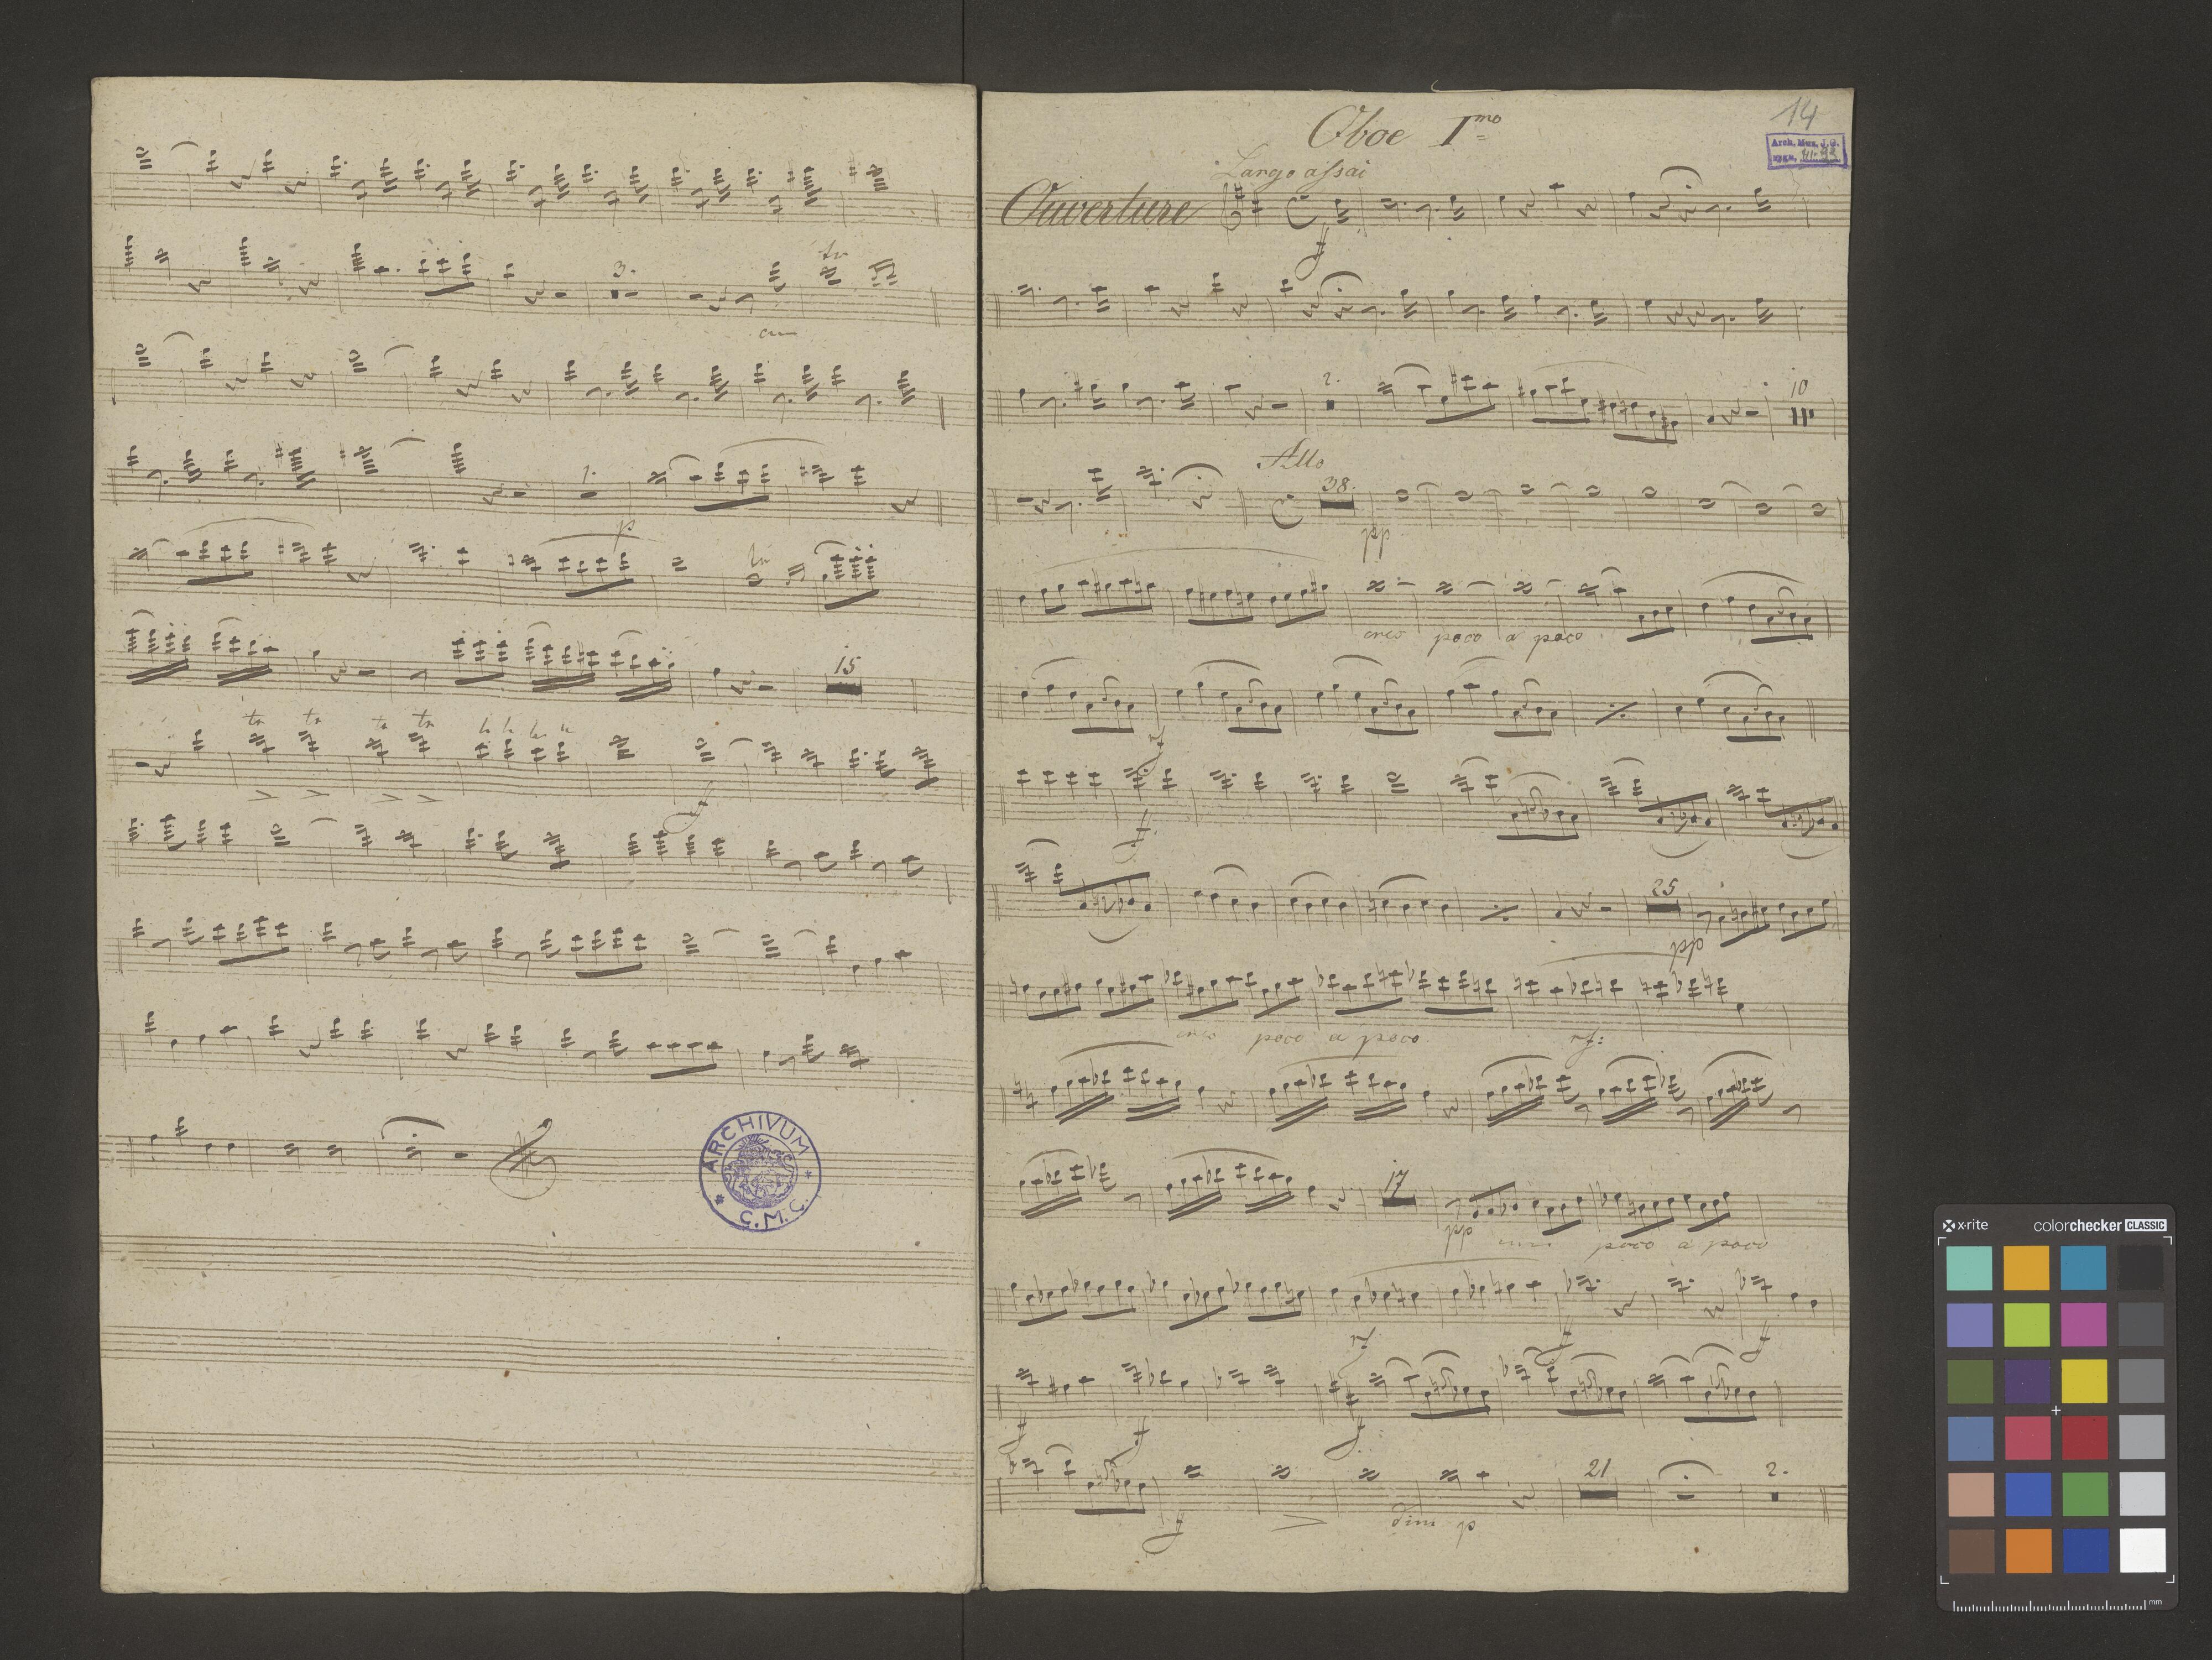 tr
3.
1.
p
tr
15
tr tr tr tr tr tr tr tr
f
ARCHIVUM
C.M.J.
14
Oboe Imo
Arch. Muz. J.G.
sygn.
Largo assai
Ouverture
f
2.
10
Allo
38.
pp
cres poco a poco
f
25
pp
cres poco a poco
rf:
17
pp
poco a poco
rf
f f
f f f
21
2.
f dim p
x-rite colorchecker CLASSIC
mm